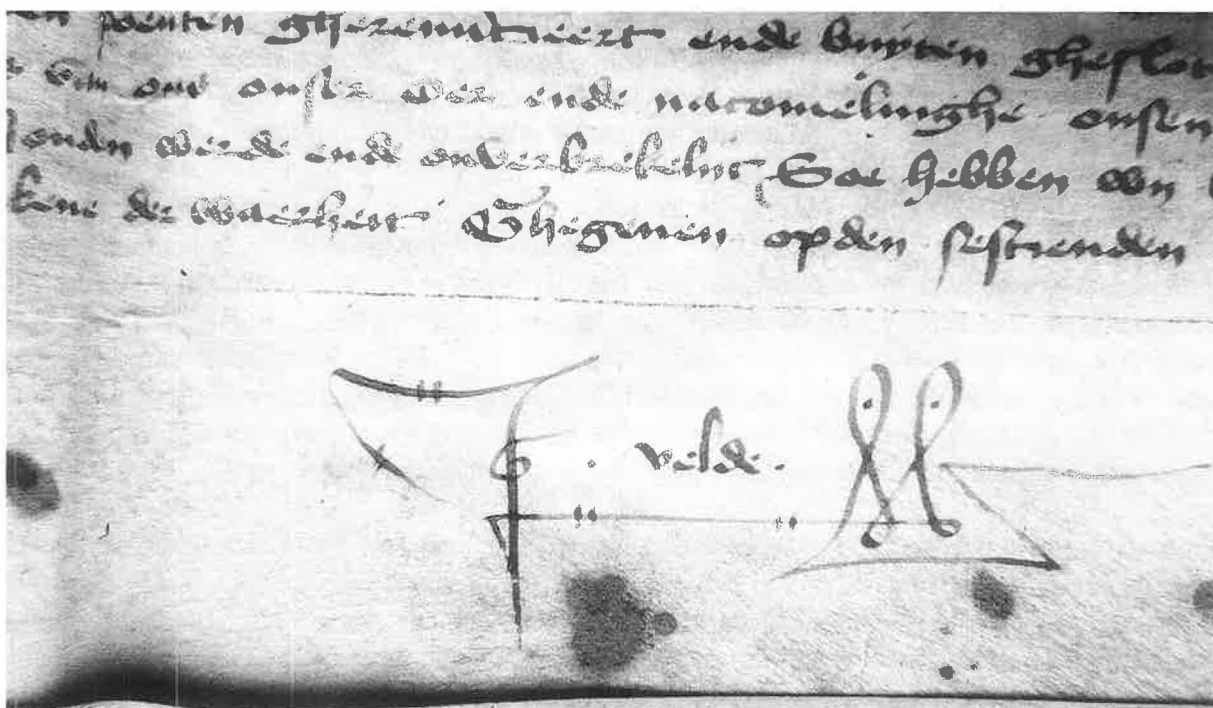 poenten gherenuncieert ende buyten gheslot
van ons onser oer ende nacomelinghe onsen
onden werde ende onverbrekelic Soe hebben wy
kene der waerheit Ghegeuen opden sestienden
. velde .